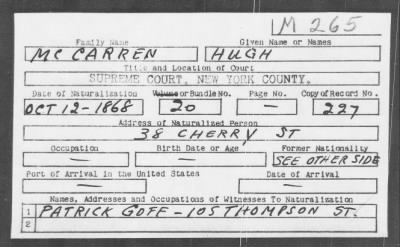 M 265
Family Name Given Name or Names
MCCARREN HUGH
Title and Location of Court
SUPREME COURT, NEW YORK COUNTY.
Date of Naturalization Volume or Bundle No. Page No. Copy of Record No.
OCT 12-1868 20 — 227
Address of Naturalized Person
38 CHERRY ST
Occupation Birth Date or Age Former Nationality
— — SEE OTHER SIDE
Port of Arrival in the United States Date of Arrival
— —
Names, Addresses and Occupations of Witnesses To Naturalization
1 PATRICK GOFF - 105 THOMPSON ST.
2